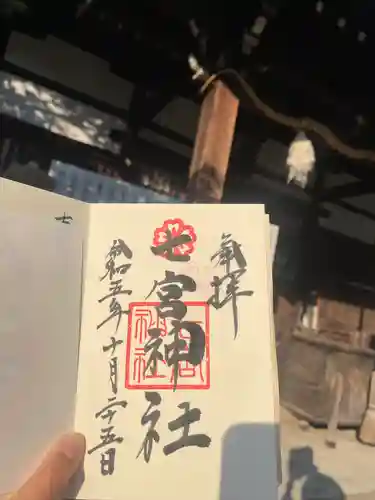 奉拝
七宮神社
七宮神社
令和五年十月二十五日
七